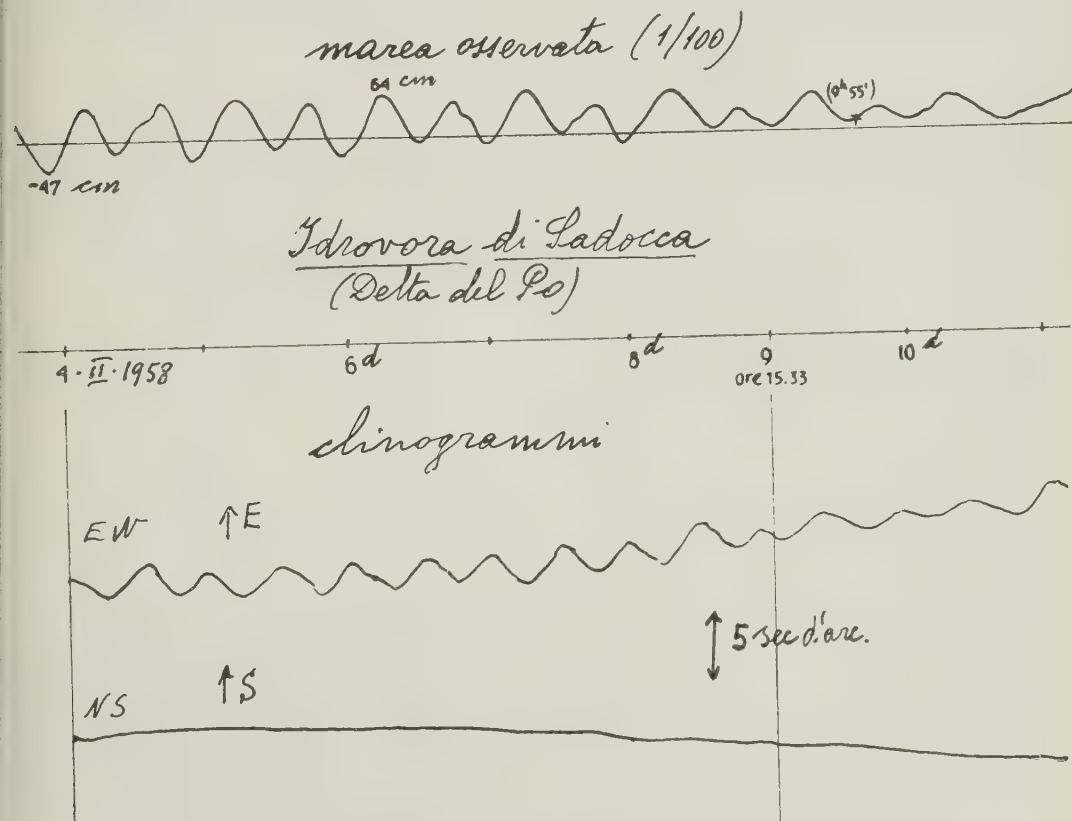 marea osservata (1/100)
64 cm
(9h 55')
-47 cm
Idrovora di Sadocca
(Delta del Po)
4·II·1958
6d
8d
9
10d
ore 15.33
clinogrammi
EW
↑E
5 sec d'arc.
NS
↑S